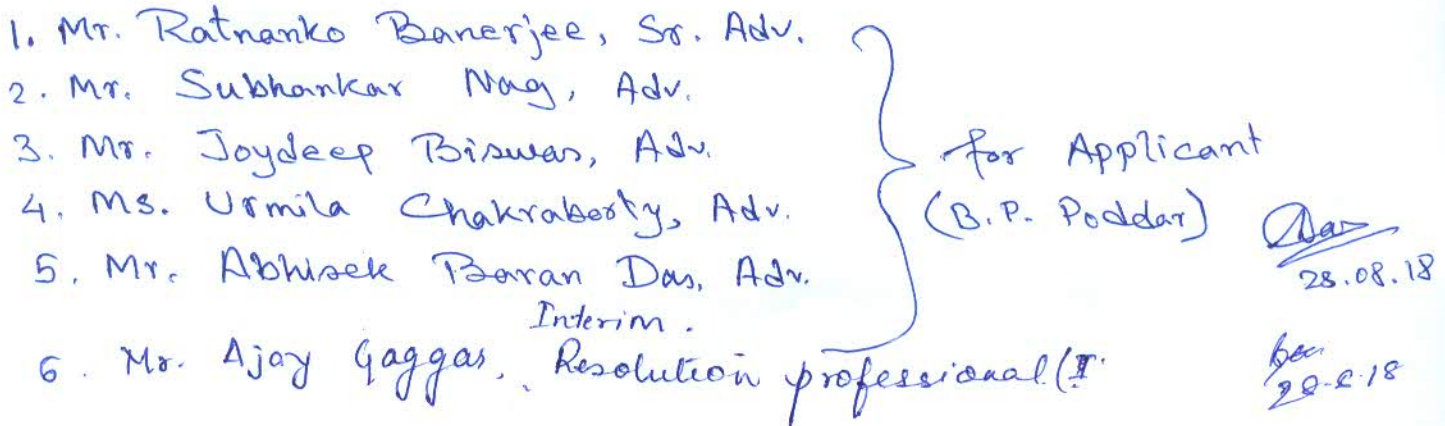 1. Mr. Ratnanko Banerjee, Sr. Adv.
2. Mr. Subhankar Nag, Adv.
3. Mr. Joydeep Biswas, Adv.
4. Ms. Urmila Chakraborty, Adv.
5. Mr. Abhisek Baran Das, Adv.
for Applicant
(B.P. Poddar)
28.08.18
Interim.
6. Mr. Ajay Gaggar, Resolution professional (I